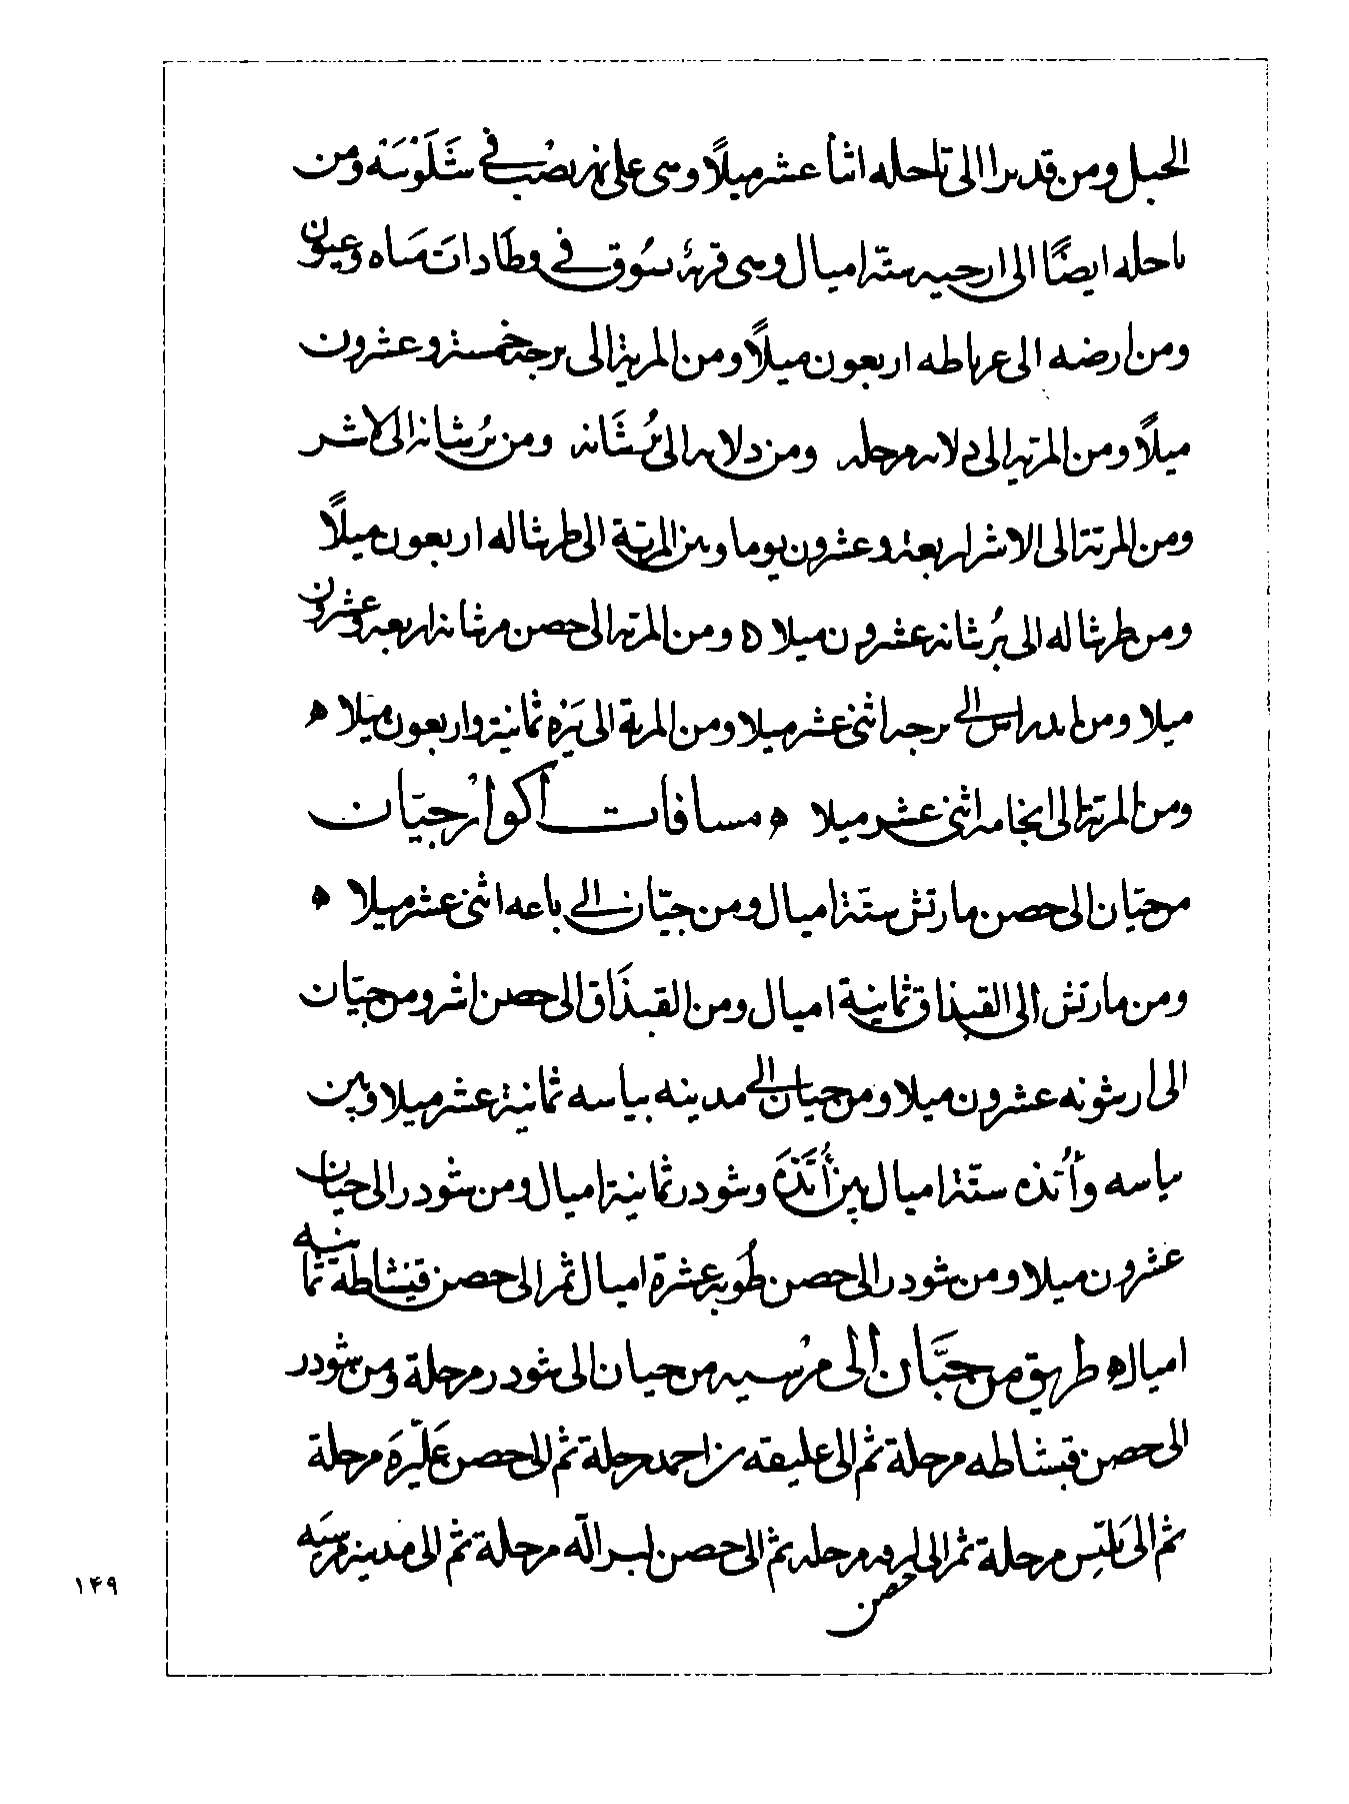 الجبل ومن قديرا الى تاحله اثنا عشر ميلًا وهى على نهر يصُب فى شَلَوْبنَه ومن
تاحله ايضًا الى ارحبه ستّة اميال وهى قرية سُوق فى وطَاءٍ ذات مَياه وعيون
ومن ارضه الى غرناطه اربعون ميلًا ومن المرية الى برجة خمسة وعشرون
ميلًا ومن المرية الى دلايه مرحله ومن دلايه الى بُرشَانه ومن بُرشانه الى لاشر
ومن المرية الى الاشر اربعة وعشرون يوما وبين المرية الى طرشاله اربعون ميلًا
ومن طرشاله الى بُرشانه عشرون ميلا ه ومن المرية الى حصن مرشانة اربعة وعشرون
ميلا ومن اندراس الى برجه اثنى عشر ميلا ومن المرية الى بَيرَه ثمانية واربعون ميلا ه
ومن المرية الى ابخامه اثنى عشر ميلا ه مسافات اكوار جيّان
من جيّان الى حصن مارتش ستّة اميال ومن جيّان الى باغه اثنى عشر ميلا ه
ومن مارتش الى القبذاق ثمانية اميال ومن القبذَاق الى حصن اشر ومن جيّان
الى ارشونه عشرون ميلا ومن جيان الى مدينه بياسه ثمانية عشر ميلا وبين
بياسه وأُبّذه ستّة اميال بين أُبَّذَه وشوذر ثمانية اميال ومن شوذر الى جيان
عشرون ميلا ومن شوذر الى حصن طُويه عشرة اميال ثم الى حصن قيشاطة ثمانيه
اميال ه طريق من جَيَّان الى مُرْسيه من جيان الى شوذر مرحلة ومن شوذر
الى حصن قيشاطه مرحلة ثم الى عليقه بن احمد مرحلة ثم الى حصن عَلَيّرَه مرحلة
ثم الى بَلّيس مرحلة ثم الى لرقه مرحله ثم الى حصن مرحلة ثم الى مدينة مرسَيه
حصن
۱۴۹